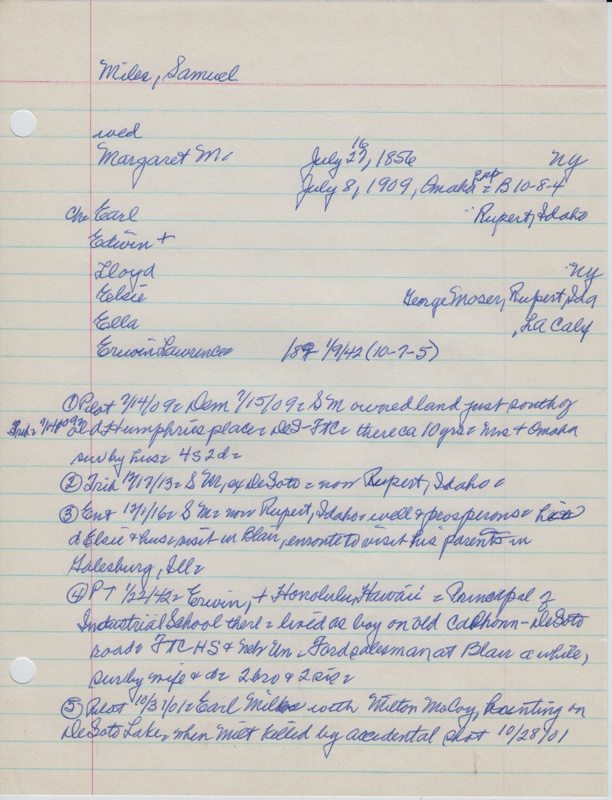 Miles, Samuel
wed
Margaret M=
July 27, 1856
16
NY
July 8, 1909, Omaha = B 10-8-4
Ch= Earl
Rupert, Idaho
Edwin +
Lloyd
NY
Elsie
George Moser, Rupert, Ida
Ella
, LA Calif
Erwin Lawrence
/89- 1/9/42 (10-7-5)
① Pilot 7/14/09= Dem 7/15/09= SM owned land just south of
Trib= 7/14/09= old Humphries place= DeS-FTC= there ca 10 yrs= Mrs + Omaha
sur by hus= 4s 2d=
② Trib 12/17/13= SM, ex DeSoto= now Rupert, Idaho=
③ Ent 12/1/16= SM= now Rupert, Idaho= well & prosperous= his
d Elsie & hus= visit in Blair, enroute to visit his parents in
Galesburg, Ill=
④ PT 1/22/42= Erwin, + Honolulu, Hawaii= Principal of
Industrial School there= lived as boy on old Calhoun-DeSoto
road= FTC HS & Neb Un= Ford salesman at Blair a while,
sur by wife & d= 2 bro & 2 sis=
⑤ Pilot 10/31/01= Earl Miles with Milton McCoy, hunting on
DeSoto Lake= when Milt killed by accidental shot 10/28/01